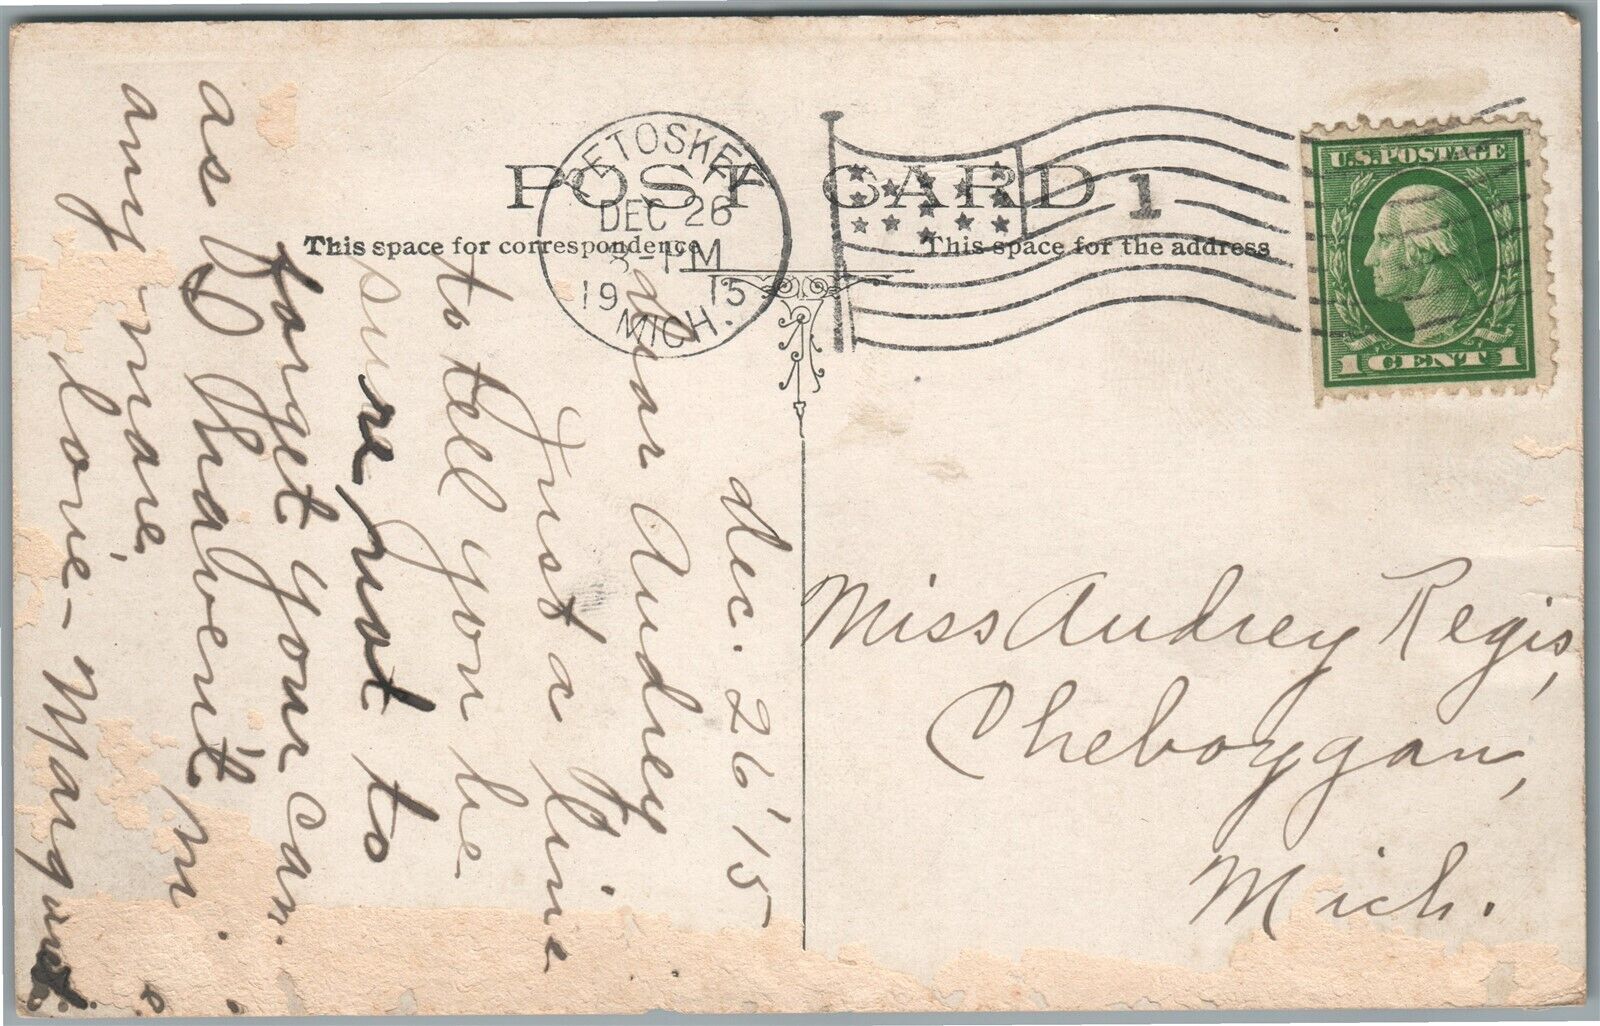 POST CARD
This space for correspondence
This space for the address
PETOSKEY
DEC 26
8-PM
1915
MICH.
1
U.S. POSTAGE
1 CENT 1
dec. 26'15
dear Audrey
Just a line
to tell you be
sure, not to
forget your can.
as I haven't
any more.
Lovie - Margaret
Miss Audrey Regis,
Cheboygan,
Mich.